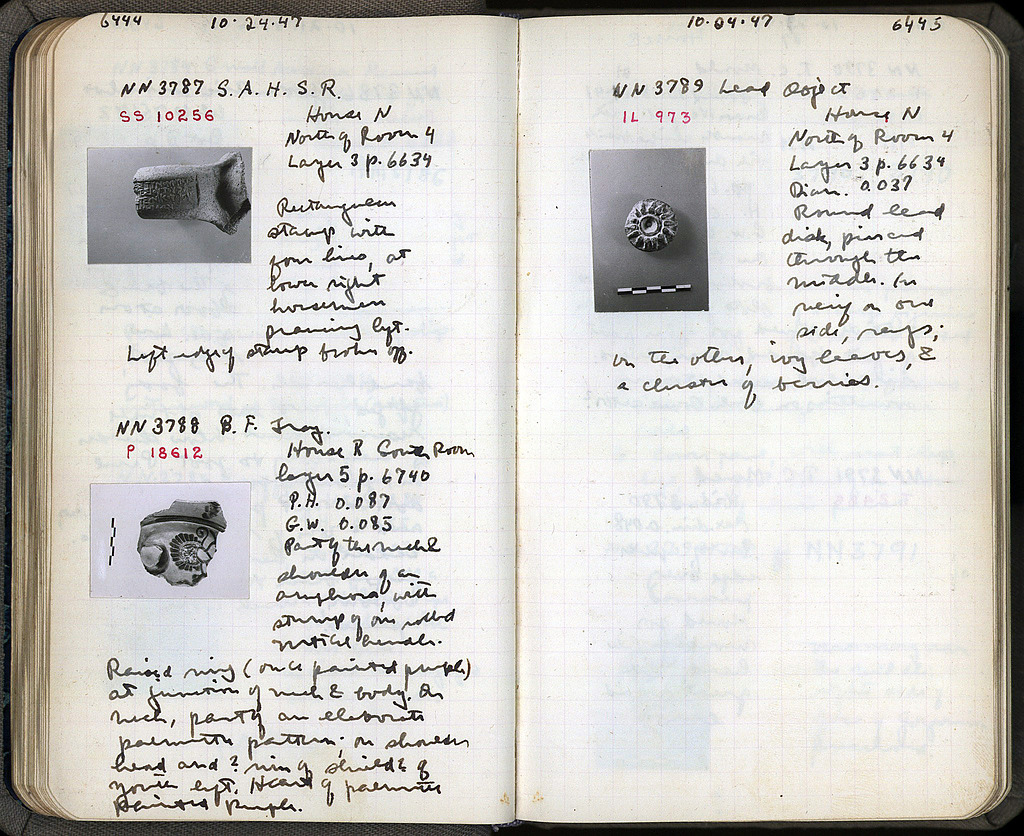 6444
10.24.47
NN 3787 S. A. H. S. R
SS 10256
House N
North of Room 4
Layer 3 p. 6634
Rectangular
stamp with
four lines, at
lower right
horseman
prancing left.
Left edge of stamp broken off.
NN 3788 B. F. Frag.
P 18612
House R South Room
layer 5 p. 6740
P.H. 0.087
G.W. 0.085
Part of the neck &
shoulder of an
amphora, with
stump of one rolled
vertical handle.
Raised ring (once painted purple)
at junction of neck & body. On
neck, part of an elaborate
palmette pattern; on shoulder
head and ? rim of shield? of
youth left. Heart of palmette
painted purple.
10.24.47
6445
NN 3789 Lead Object
IL 973
House N
North of Room 4
Layer 3 p. 6634
Diam. 0.037
Round lead
disk, pierced
through the
middle. In
relief on one
side, rays;
on the other, ivy leaves, &
a cluster of berries.